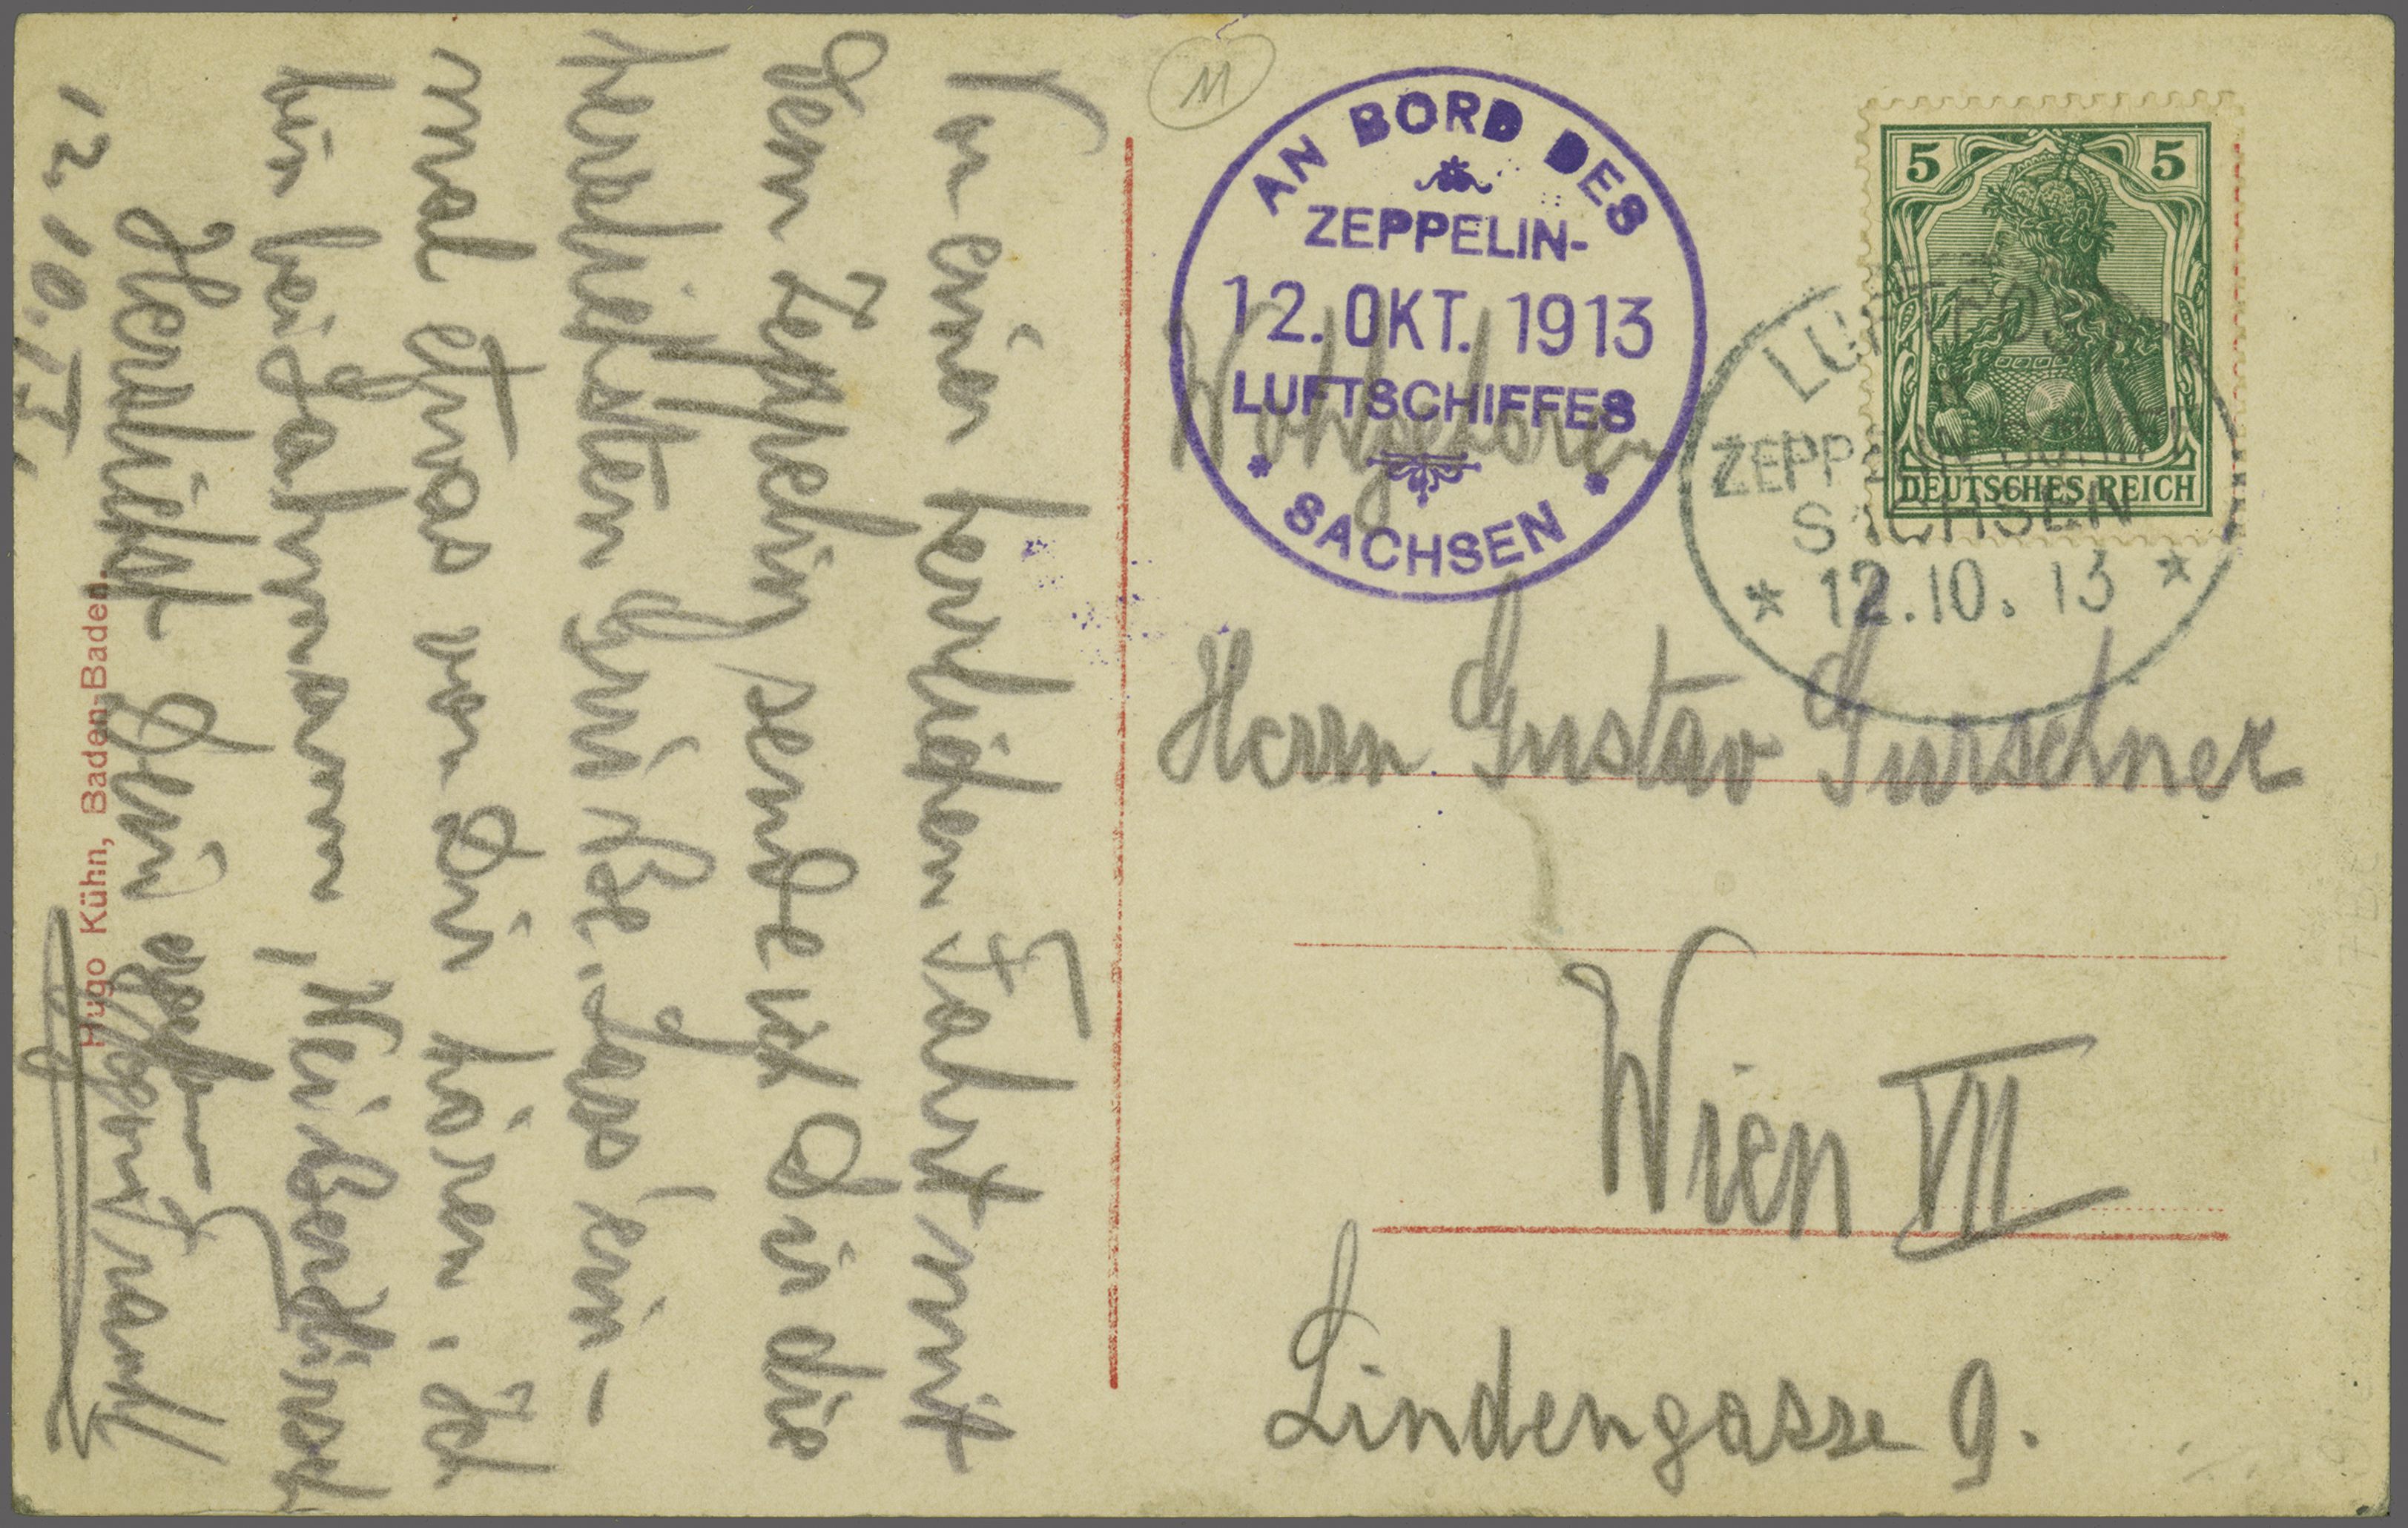 Von einer herrlichen Fahrt mit
dem Zeppelin sende ich Dir die
herzlichsten Grüße. Lass' ein-
mal etwas von Dir hören. Ich
bin bei Jahrmann, Meißendirsch
Herzlichst Dein
12.10.13.
Hugo Kühn, Baden-Baden.
11
AN BORD DES
ZEPPELIN-
12. OKT. 1913
LUFTSCHIFFES
SACHSEN
5 5
DEUTSCHES REICH
LUFTPOST
ZEPPELINSCHIFF
SACHSEN
* 12.10.13 *
Wohlgeboren
Herrn Gustav Gurschner
Wien VII
Lindengasse 9.